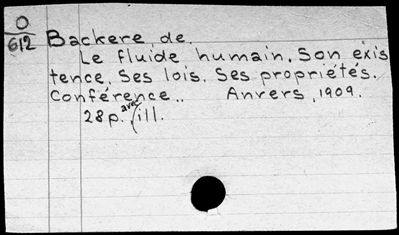 O
612 Backere, de.
Le fluide humain. Son exis
tence. Ses lois. Ses propriétés.
Conférence.. Anvers, 1909.
28p. avec ill.